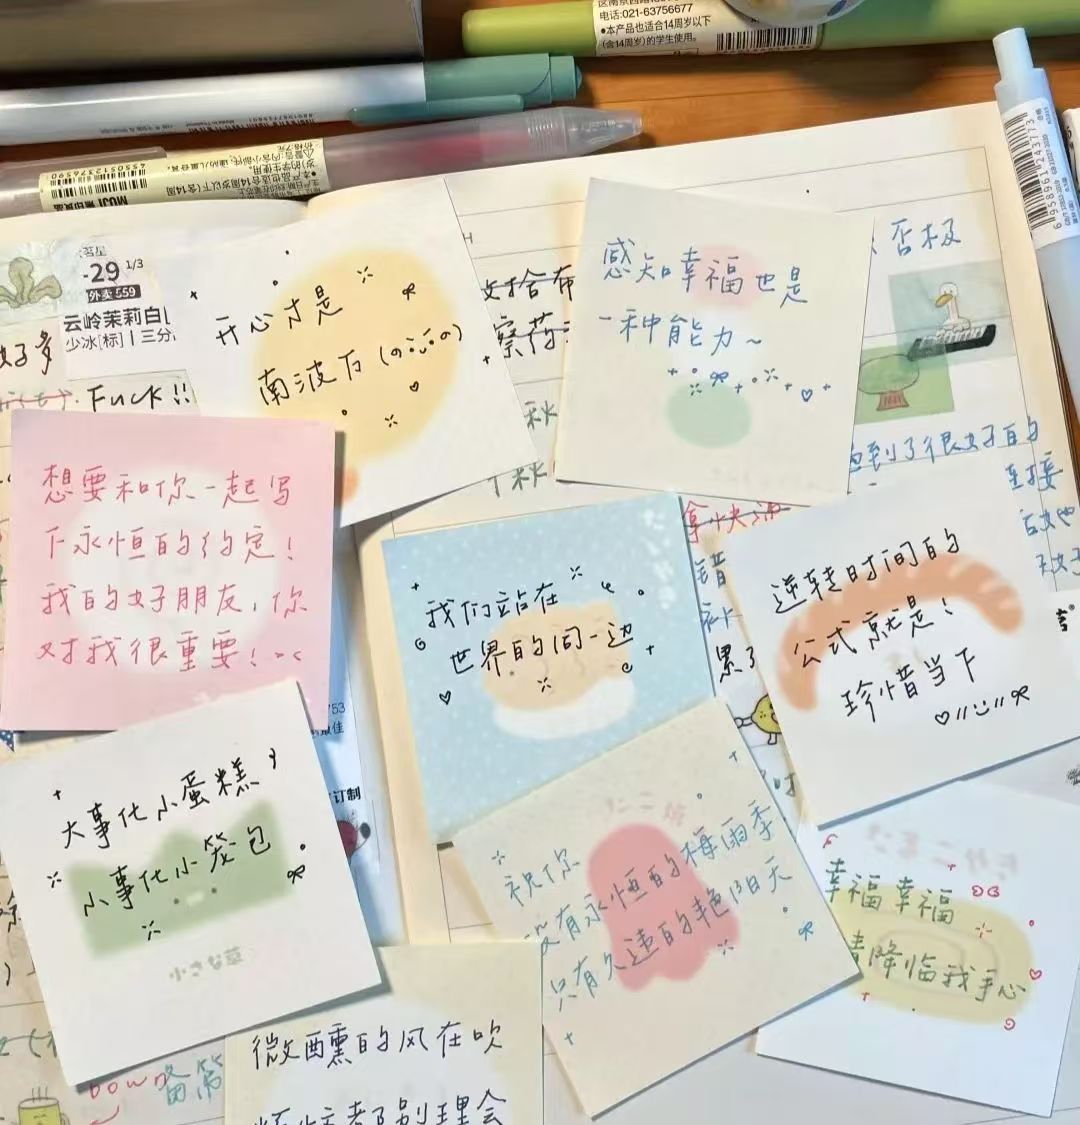 区南京西路
电话:021-63756677
●本产品也适合14周岁以下
(含14周岁)的学生使用。
6958961243773
MUJI 無印良品
4550512376590
茗星
-29 1/3
外卖 559
云岭茉莉白
少冰[标]|三分
好多
Fuck!!
开心才是
南波万
感知幸福也是
一种能力~
否极
到了很好的
想要和你一起写
下永恒的约定!
我的好朋友,你
对我很重要!
我们站在
世界的同一边
逆转时间的
公式就是!
珍惜当下
错
补
累了
订制
大事化小蛋糕,
小事化小笼包
小さな草
祝你
没有永恒的梅雨季
只有久违的艳阳天
幸福幸福
请降临我手心
微醺的风在吹
烦恼都别理会
Down